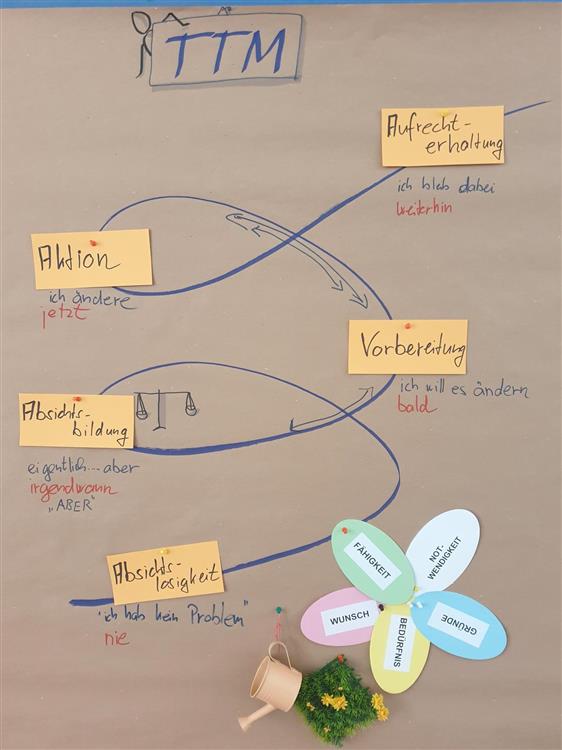 TTM
Aufrecht-
erhaltung
ich bleib dabei
weiterhin
Aktion
ich ändere
jetzt
Vorbereitung
ich will es ändern
bald
Absichts-
bildung
eigentlich... aber
irgendwann
"ABER"
Absichts-
losigkeit
"ich hab kein Problem"
nie
FÄHIGKEIT
NOT-
WENDIGKEIT
WUNSCH
BEDÜRFNIS
GRÜNDE